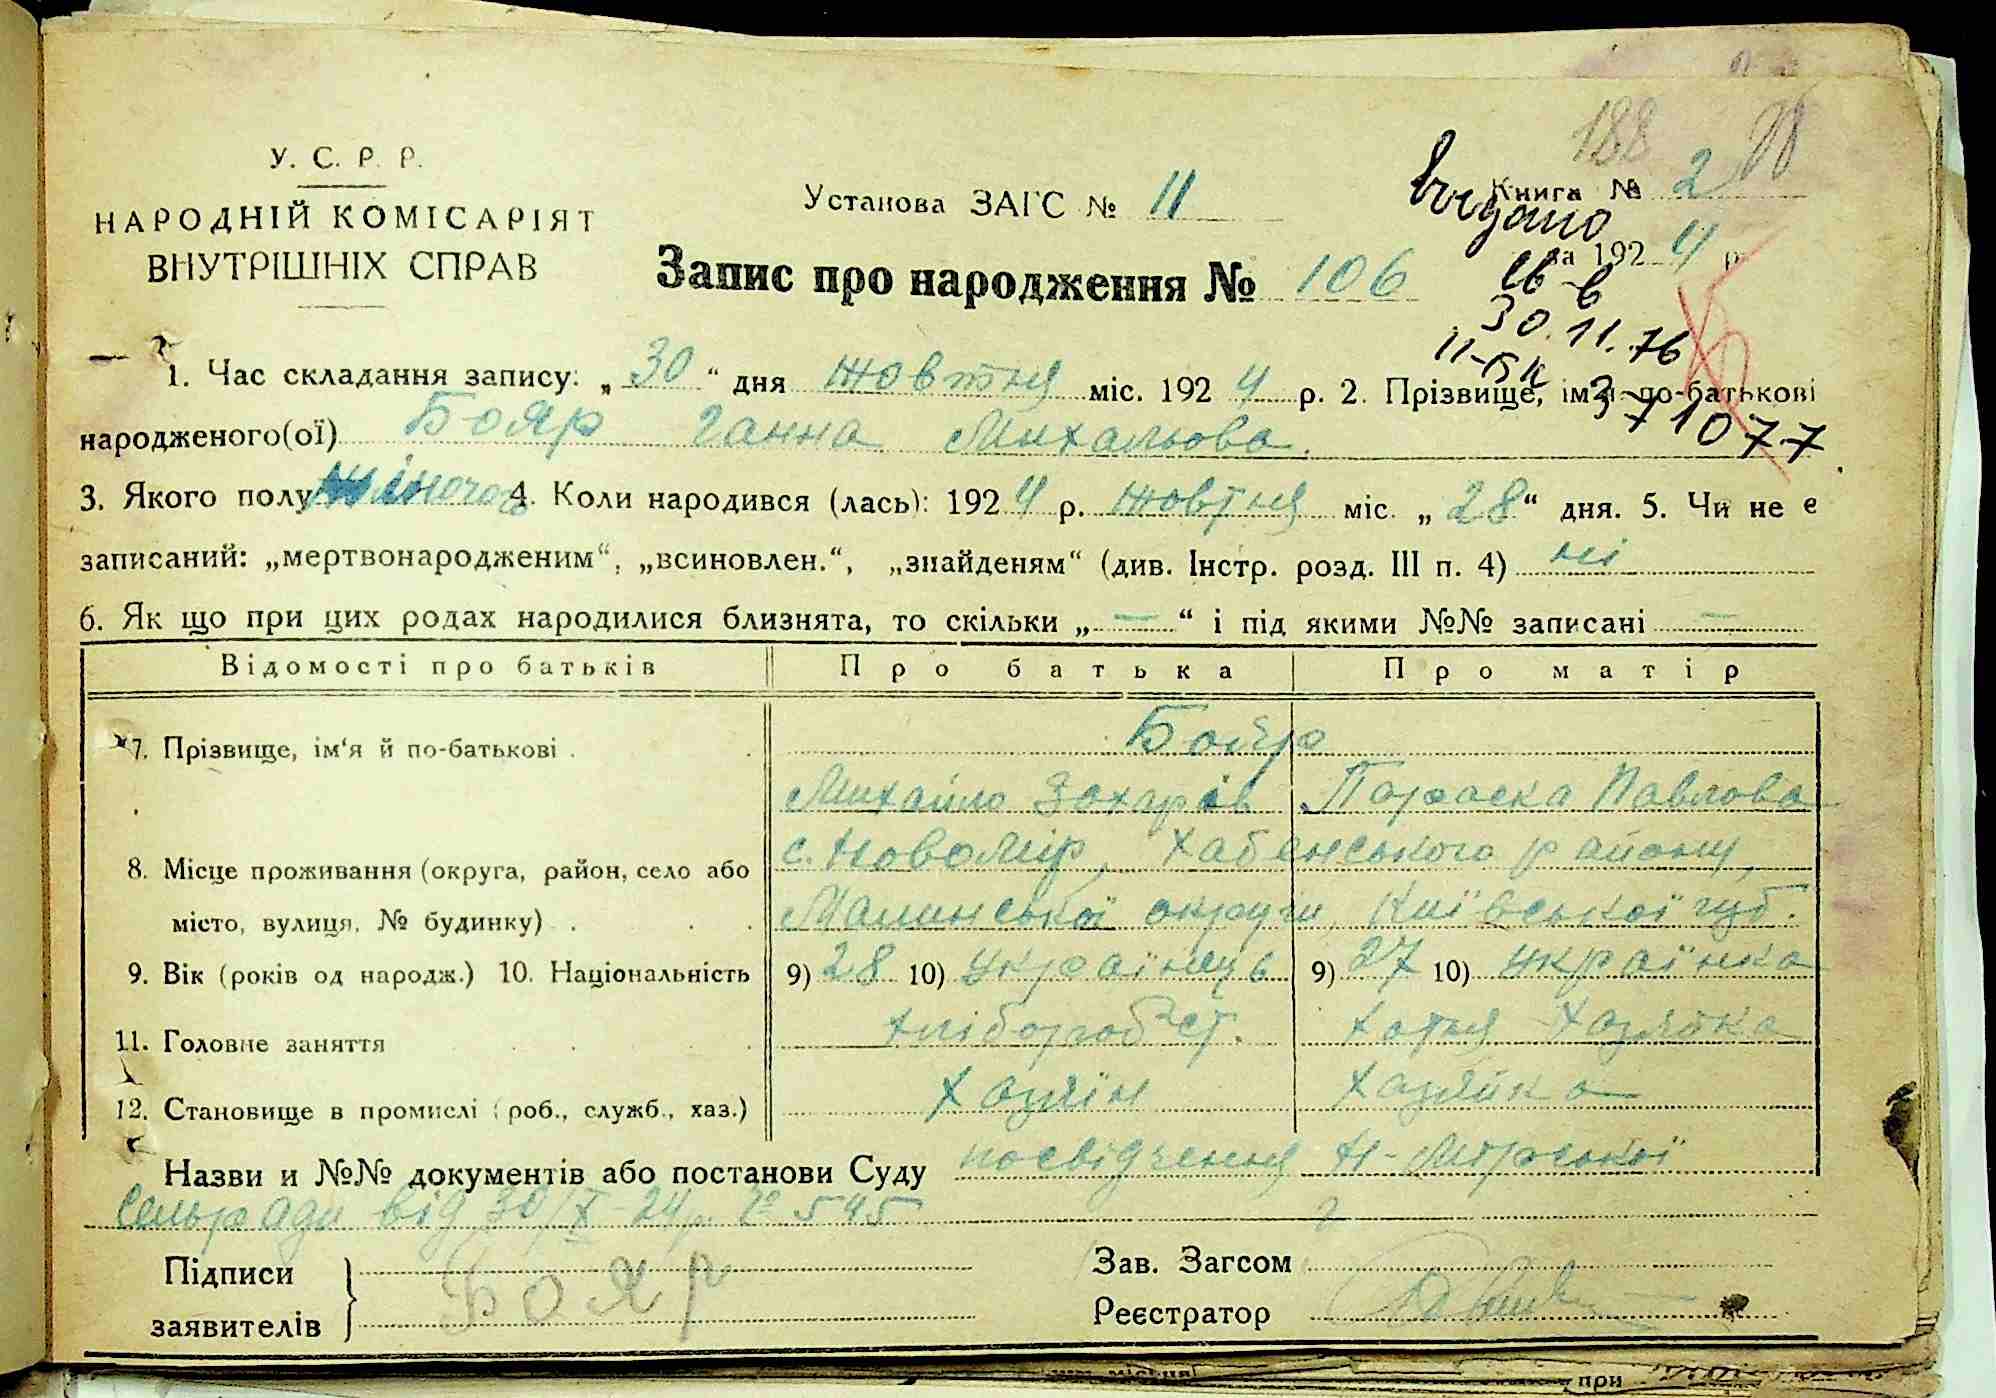 188
У. С. Р. Р.
НАРОДНІЙ КОМІСАРІЯТ
ВНУТРІШНІХ СПРАВ
Установа ЗАГС № 11
Книга № 2
за 1924 р.
Запис про народження № 106
видано
св-в
30.11.76
II-БК
371077
1. Час складання запису: „30“ дня жовтня міс. 1924 р. 2. Прізвище, ім'я по-батькові
народженого(ої) Бояр Ганна Михальова.
3. Якого полу жіночого 4. Коли народився (лась): 1924 р. жовтня міс. „28“ дня. 5. Чи не є
записаний: „мертвонародженим“, „всиновлен.“, „знайденям“ (див. Інстр. розд. III п. 4) ні
6. Як що при цих родах народилися близнята, то скільки „—“ і під якими №№ записані —
Відомості про батьків Про батька Про матір
7. Прізвище, ім'я й по-батькові . Бояр
Михайло Захарів Параска Павлова
8. Місце проживання (округа, район, село або с. Новомір, Хабенського району,
місто, вулиця, № будинку) . Малинської округи, Київської губ.
9. Вік (років од народж.) 10. Національність 9) 28 10) українець 9) 27 10) українка
11. Головне заняття хлібороб ст. хатня хазяйка
12. Становище в промислі (роб., служб., хаз.) хазяїн хазяйка
Назви и №№ документів або постанови Суду посвідчення Н-Мірської
Сельради від 30/X-24 р. № 545
Підписи
заявителів
Бояр
Зав. Загсом
Реєстратор
при